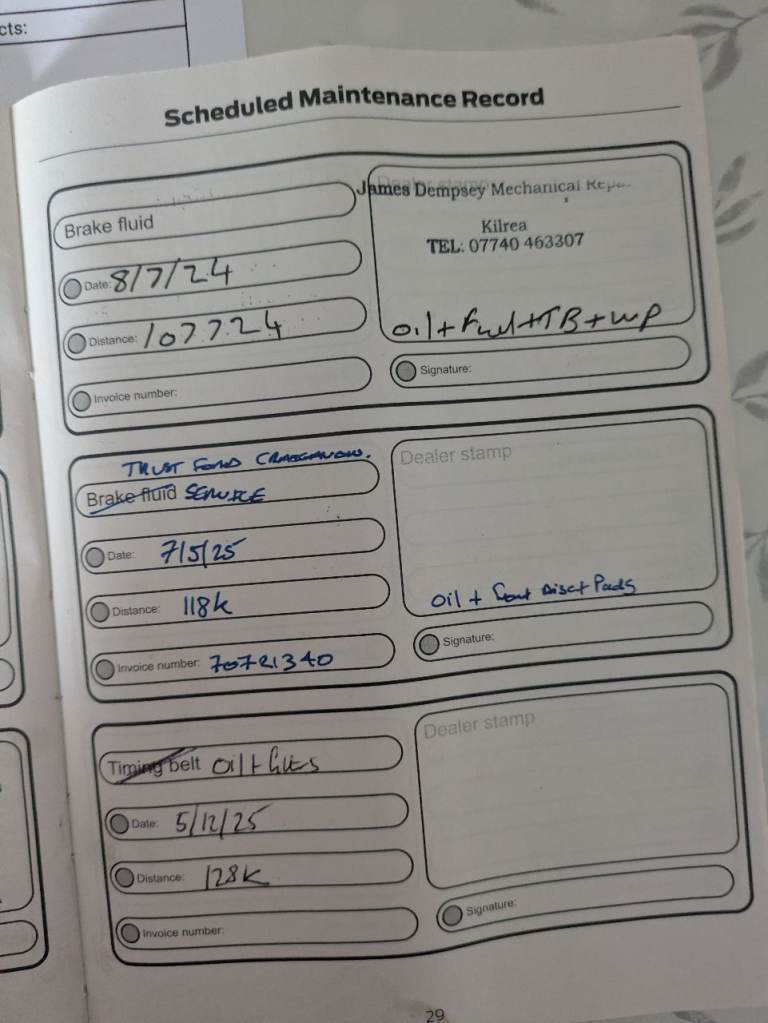 cts:
Scheduled Maintenance Record
James Dempsey Mechanical
Kilrea
TEL: 07740 463307
Brake fluid
Date: 8/7/24
Distance: 107724
oil + Fuel + TB + WP
Invoice number:
Signature:
TRUST FORD CRAIGAVON.
Dealer stamp
Brake fluid SERVICE
Date: 7/5/25
Distance: 118k
oil + Front Disc + Pads
Invoice number: 70721340
Signature:
Dealer stamp
Timing belt oil + filters
Date: 5/12/25
Distance: 128K
Invoice number:
Signature:
29